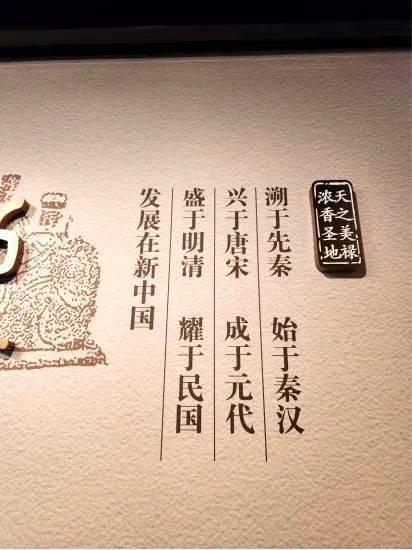 天之美禄
浓香圣地
溯于先秦 始于秦汉
兴于唐宋 成于元代
盛于明清 耀于民国
发展在新中国